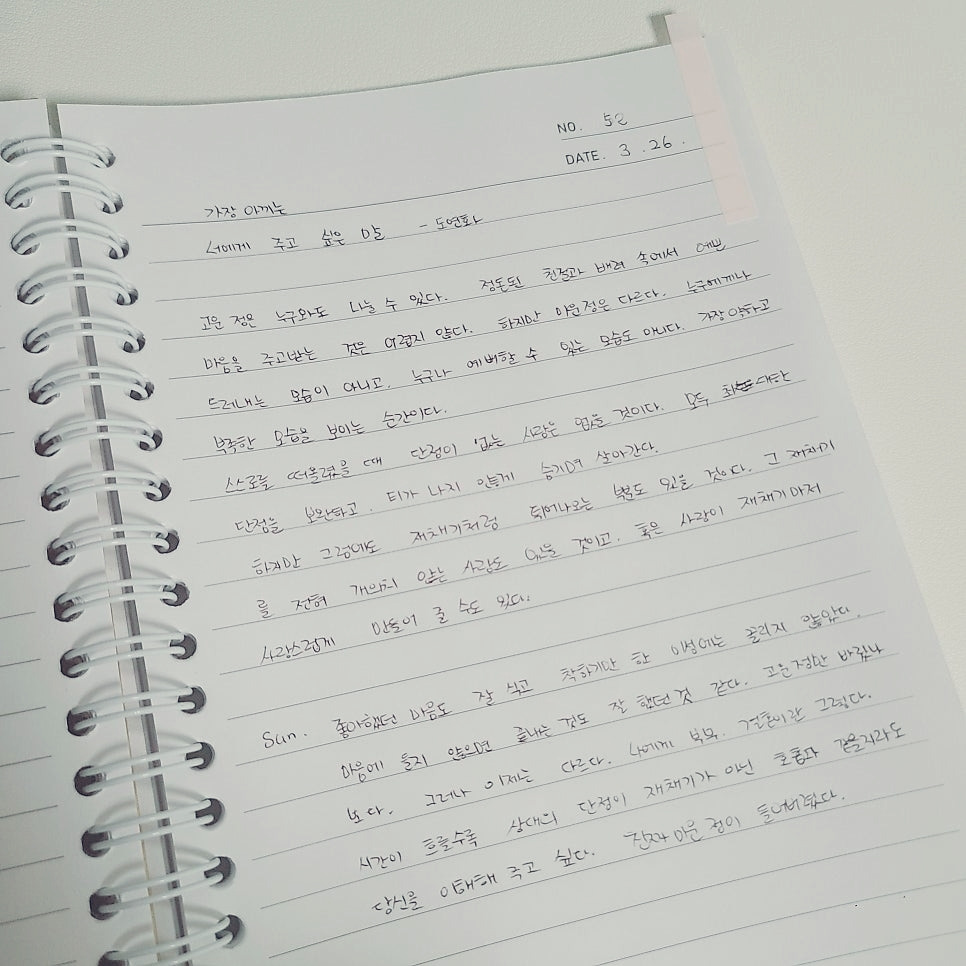 NO. 52
DATE. 3. 26.
가장 아끼는
너에게 주고 싶은 말 - 도연화
고운 정은 누구와도 나눌 수 있다. 정돈된 친절과 배려 속에서 예쁜
마음을 주고받는 것은 어렵지 않다. 하지만 미운정은 다르다. 누구에게나
드러내는 모습이 아니고, 누구나 예뻐할 수 있는 모습도 아니다. 가장 약하고
부족한 모습을 보이는 순간이다.
스스로를 떠올렸을 때 단점이 없는 사람은 없을 것이다. 모두 최대한
단점을 보완하고, 티가 나지 않게 숨기며 살아간다.
하지만 그럼에도 재채기처럼 튀어나오는 부분도 있을 것이다. 그 재채기
를 전혀 개의치 않는 사람도 있을 것이고, 혹은 사랑이 재채기마저
사랑스럽게 만들어 줄 수도 있다.
Sun. 좋아했던 마음도 잘 식고 착하기만 한 이성에는 끌리지 않았다.
마음에 들지 않으면 끝내는 것도 잘 했던 것 같다. 고운정만 바랐나
보다. 그러나 이제는 다르다. 나에게 부부, 결혼이란 그렇다.
시간이 흐를수록 상대의 단점이 재채기가 아닌 호흡과 같을지라도
당신을 이해해 주고 싶다. 진짜 미운 정이 들어버렸다.